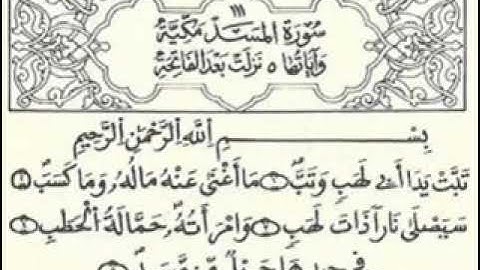 ١١١
سُورَةُ المَسَدِ مَكِّيَّةٌ
وَآيَاتُهَا ٥ نَزَلَتْ بَعْدَ الفَاتِحَةِ
بِسْمِ اللَّهِ الرَّحْمَٰنِ الرَّحِيمِ
تَبَّتْ يَدَا أَبِي لَهَبٍ وَتَبَّ ١ مَا أَغْنَىٰ عَنْهُ مَالُهُ وَمَا كَسَبَ ٢
سَيَصْلَىٰ نَارًا ذَاتَ لَهَبٍ ٣ وَامْرَأَتُهُ حَمَّالَةَ الْحَطَبِ ٤
فِي جِيدِهَا حَبْلٌ مِّن مَّسَدٍ ٥